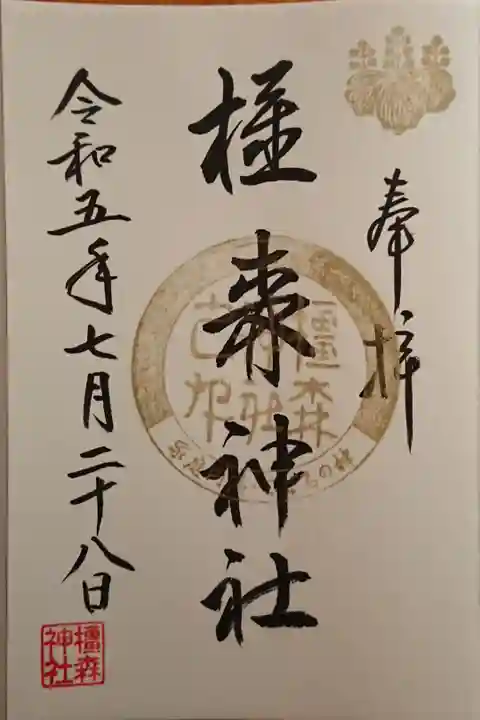 奉拝
橿森神社
令和五年七月二十八日
橿森
神社
橿森
神社